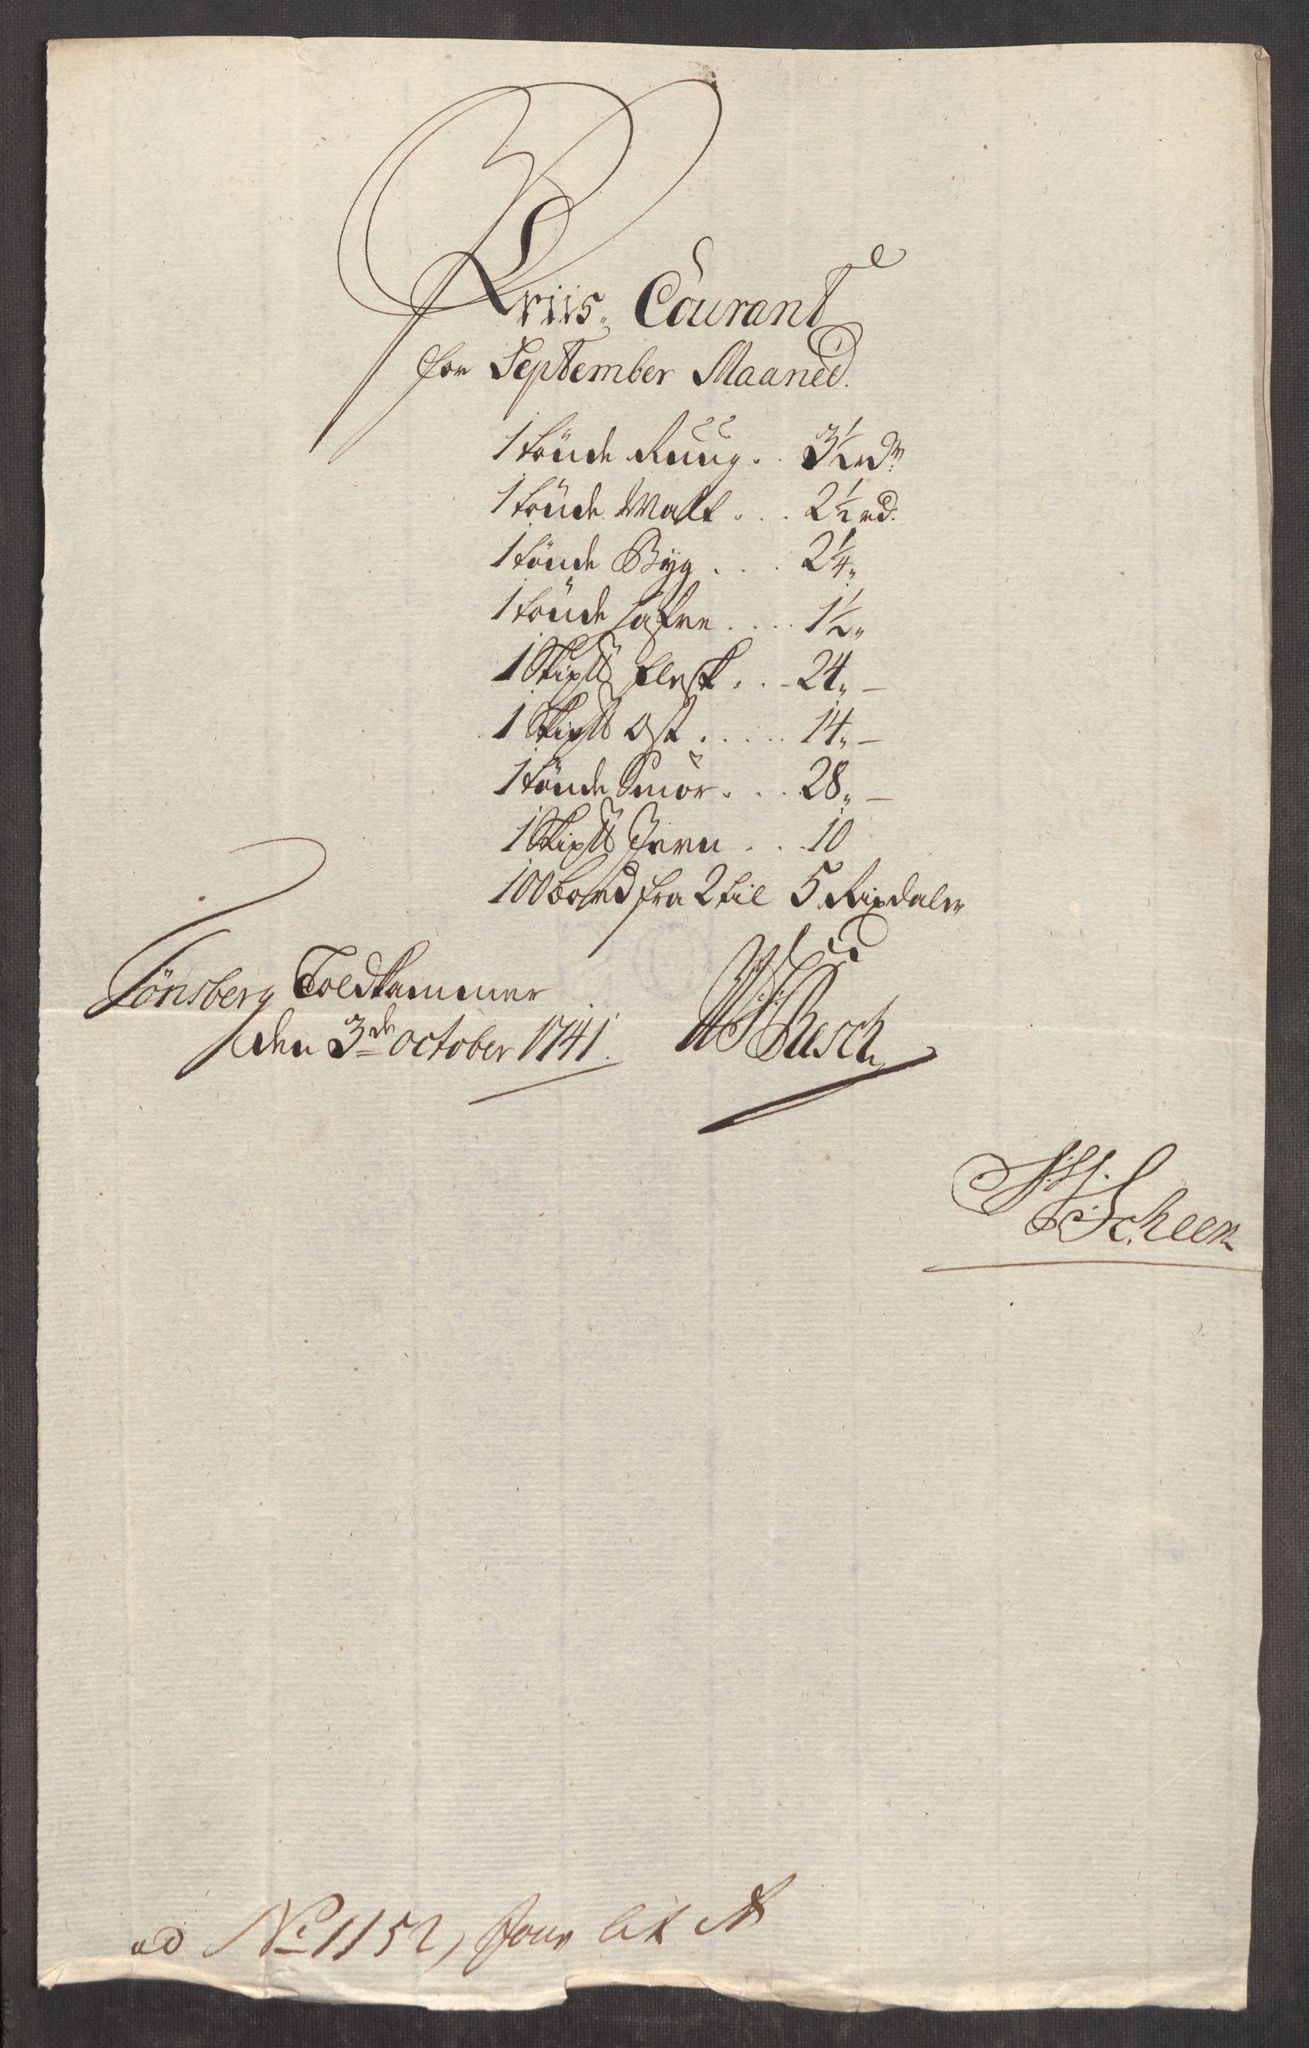 Priis, Courant
for September Maaned.
1 tönde Ruug . . 3½ rdr
1 tönde Malt . . . 2½ rd:
1 tönde Byg . . . . 2¼ „
1 tönde Hafre . . . . 1½ „
1 Skip℔ Flesk . . 24 „ —
1 Skip℔ Ost . . . . . 14 „ —
1 tönde Smör . . . 28 „ —
1 Skip℔ Jern . . . 10
100 bord fra 2 til 5 Rixdaler
Tönsberg Toldkammer
den 3de october 1741.
Resch
Scheen
ad No 1152, Jour lit A